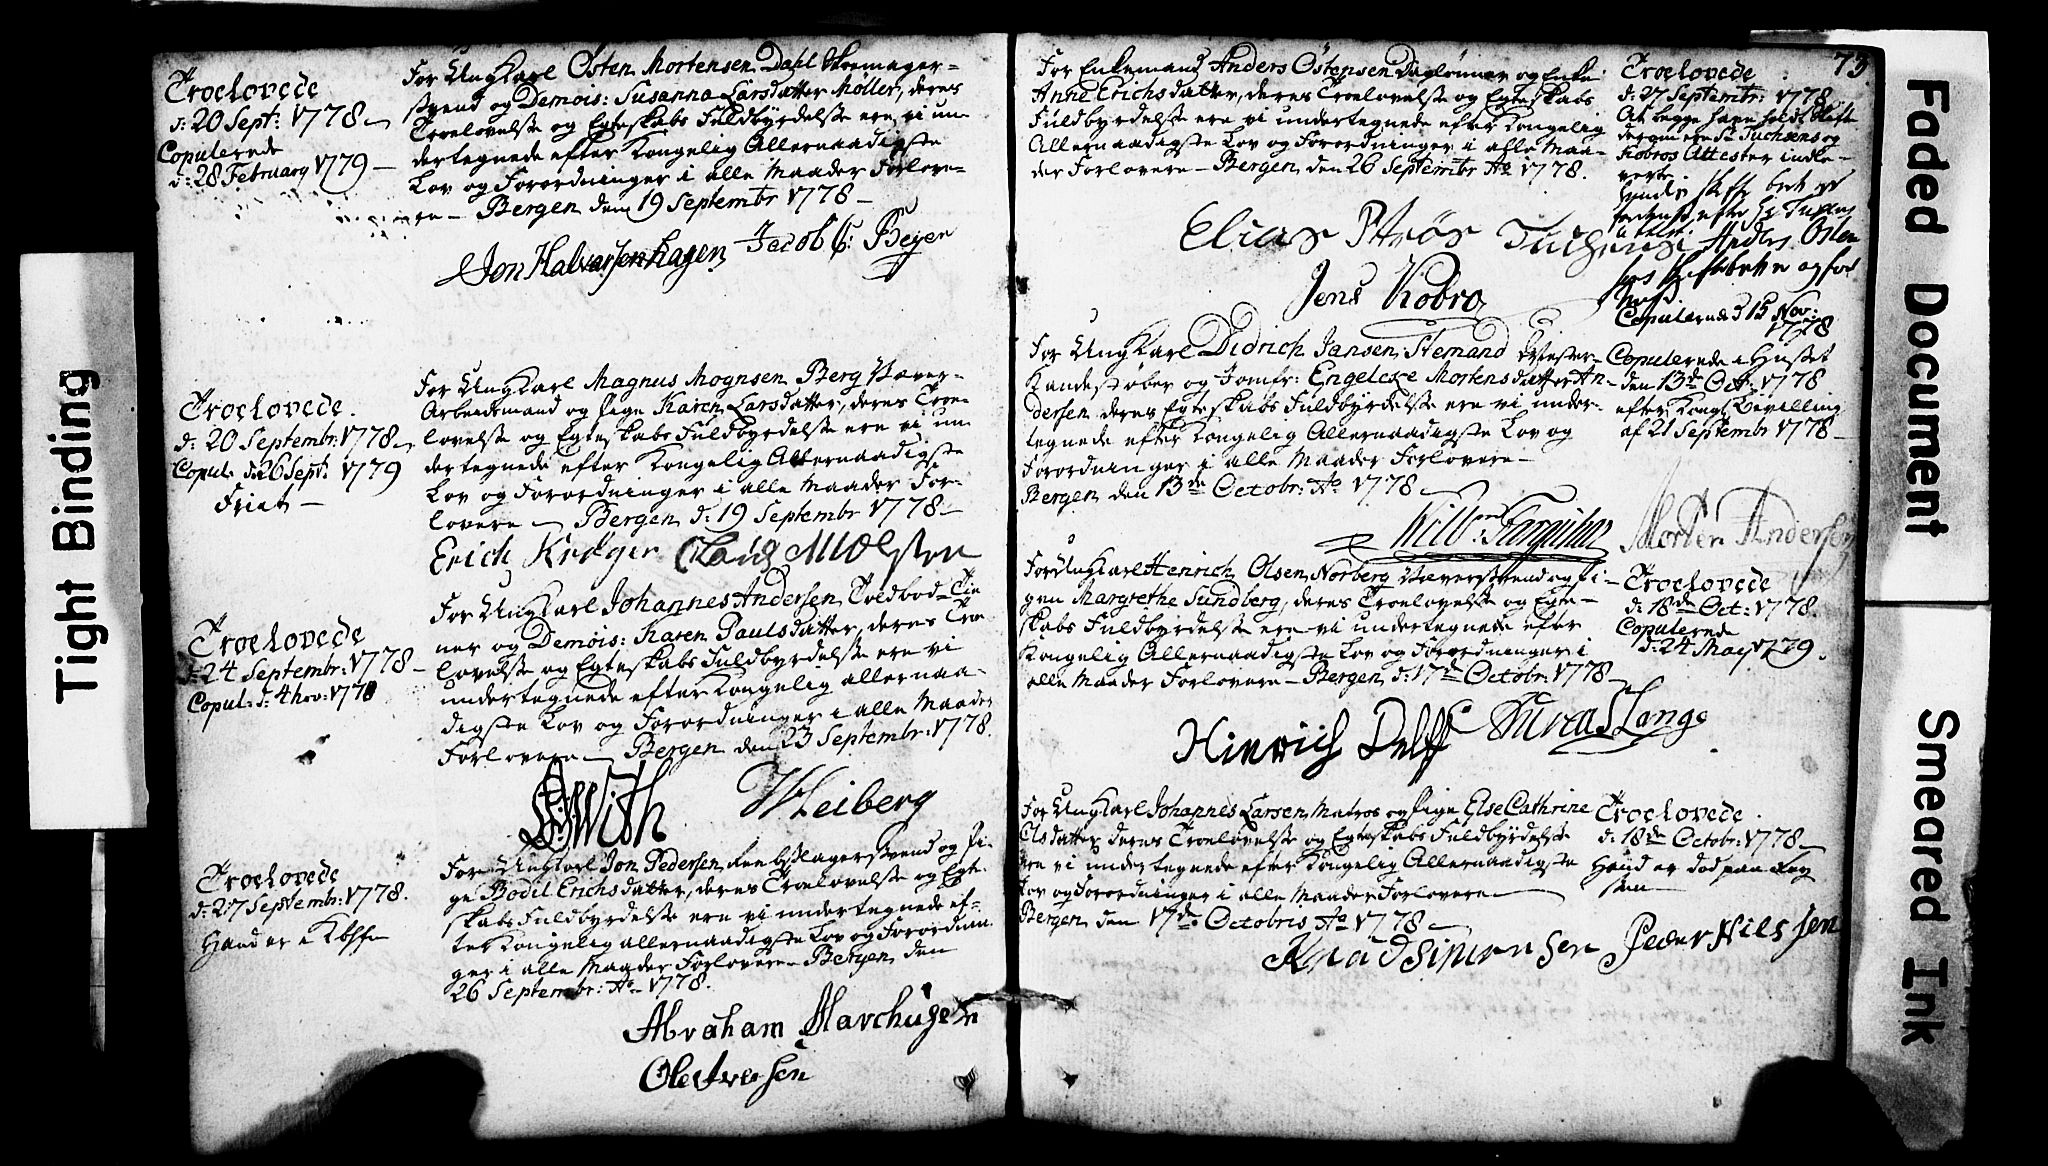 Troelovede
d: 20 Sept: 1778
Copulerede
d: 28 February 1779
For Ung Karl Østen Mortensen Dahl Skomager-
svend og Demois: Susanna Larsdatter Møller, deres
Troelovelse og Egteskabs Fuldbyrdelse ere vi un-
dertegnede efter Kongelig Allernaadigste
Lov og Forordninger i alle Maader Forlove-
re - Bergen den 19 Septembr 1778
Jon Halvorsen hagen Jacob C: Beyer
Troelovede
d: 20 Septembr: 1778
Copul: d: 26 Sept: 1779
For Ung Karl Magnus Mognsen Berg
Arbeidsmand og Pige Karen Larsdatter, deres Troe-
lovelse og Egteskabs Fuldbyrdelse ere vi un-
dertegnede efter Kongelig Allernaadigste
Lov og Forordninger i alle Maader For-
lovere - Bergen d: 19 Septembr 1778
Erich Krøger
Troelovede
d: 24 Septembr: 1778
Copul: d: 4 nov: 1778
For Ung Karl Johannes Andersen Toldbod-Tie
ner og Demois: Karen Paulsdatter, deres Troe
lovelse og Egteskabs Fuldbyrdelse ere vi
undertegnede efter Kongelig allernaa-
digste Lov og Forordninger i alle Maader
Forlovere - Bergen den 23 Septembr: 1778.
With Heiberg
Troelovede
d: 27 Septembr: 1778.
For Ung Karl Jon Pedersen svend og Pi-
ge Bodil Erichsdatter, deres Troelovelse og Egte-
skabs Fuldbyrdelse ere vi undertegnede ef-
ter Kongelig allernaadigste Lov og Forordnin-
ger i alle Maader Forlovere - Bergen den
26 Septembr: Ao 1778.
Abraham Marchusen
Ole Iversen
73
For Enkemand Anders Østensen Daglønner og Enke
Anne Erichsdatter, deres Troelovelse og Egteskabs
Fuldbyrdelse ere vi undertegnede efter Kongelig
Allernaadigste Lov og Forordninger i alle Maa-
der Forlovere - Bergen den 26 Septembr Ao 1778.
Elias Jens Kobro
Troelovede
d: 27 Septembr: 1778
At begge have holdt Skifte
derom ere Sr Tuchsens og
Kobros Attester indle-
verte.
Copulerede d 15 Nov:
1778
For Ung Karl Didrich Jansen Hemand Mester-
Kandestøber og Jomfr: Engelcke Mortensdatter An-
dersen, deres Egteskabs Fuldbyrdelse ere vi under-
tegnede efter Kongelig Allernaadigste Lov og
Forordninger i alle Maader Forlovere -
Bergen den 13de Octobr: Ao 1778
Copulerede i Huuset
den 13de Oct: 1778
efter Kongl Bevilling
af 21 Septembr 1778
Will. Farquhar Morten Andersen
For Ung Karl Henrich Olsen Norberg Væversvend og Pi-
gen Margrethe Sundberg, deres Troelovelse og Egte-
skabs Fuldbyrdelse ere vi undertegnede efter
Kongelig Allernaadigste Lov og Forordninger i
alle Maader Forlovere - Bergen d: 17de Octobr: 1778
Troelovede
d: 18de Oct: 1778.
Copulerede
d: 24 May 1779.
Hinrich Delff Lange
For Ung Karl Johannes Larsen Matros og Pige Else Cathrine
Olsdatter deres Troelovelse og Egteskabs Fuldbyrdelse
ere vi undertegnede efter Kongelig Allernaadigste
Lov og Forordninger i alle Maader Forlovere
Bergen den 17de Octobris Ao 1778
Troelovede
d: 18de Octobr: 1778
Hand er død paa Rey
sen
Knud Simonsen Peder Nilssen
Tight Binding
Faded Document
Smeared Ink